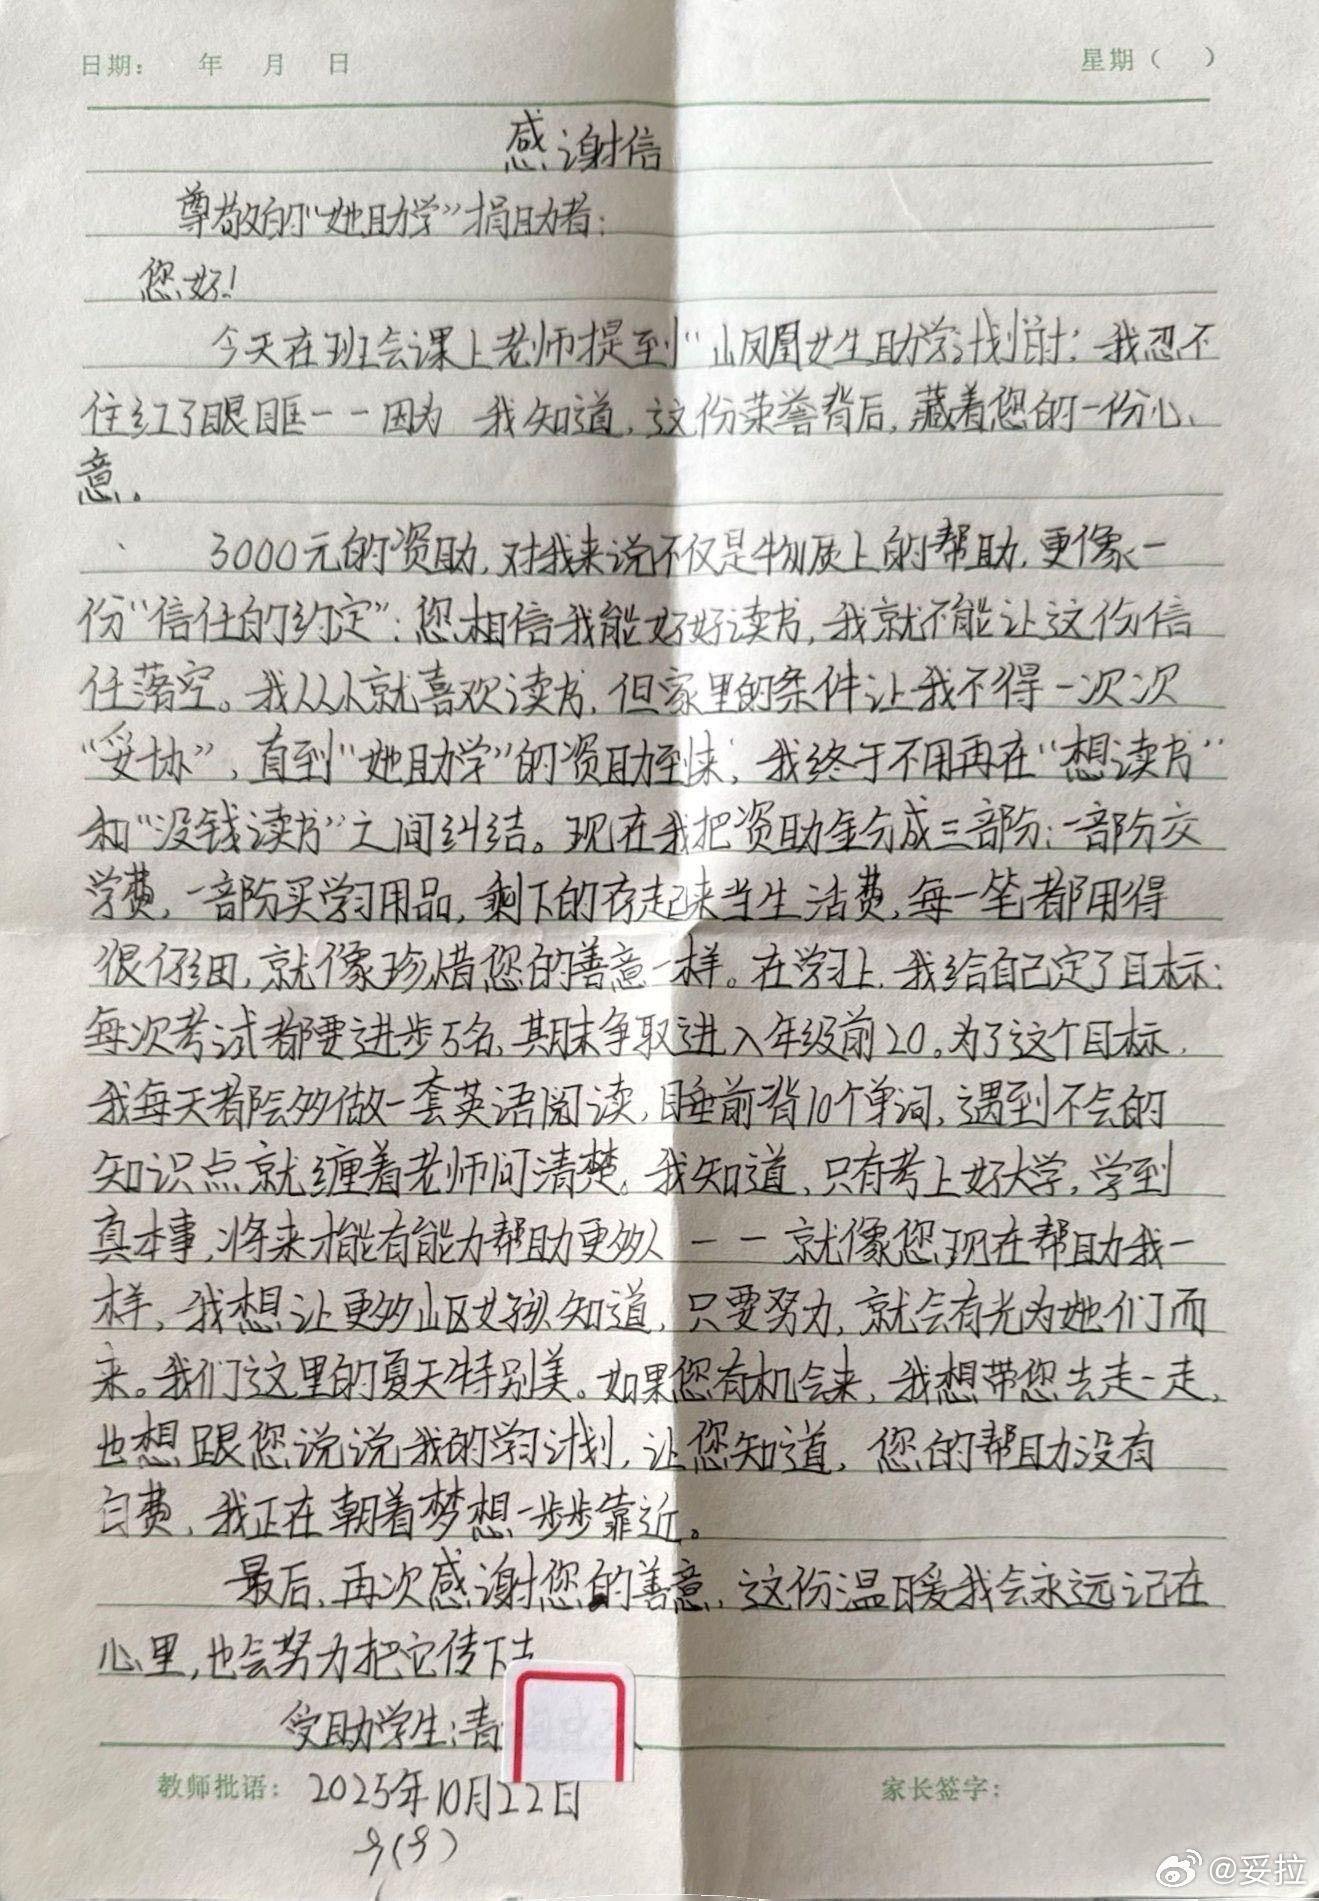 日期： 年 月 日 星期（ ）
感谢信
尊敬的“她助学”捐助者：
您好！
今天在班会课上老师提到“山凤凰女生助学计划时，我忍不
住红了眼眶——因为 我知道，这份荣誉背后，藏着您的一份心
意。
3000元的资助，对我来说不仅是物质上的帮助，更像一
份“信任的约定”：您相信我能好好读书，我就不能让这份信
任落空。我从小就喜欢读书，但家里的条件让我不得一次次
“妥协”，直到“她助学”的资助到来，我终于不用再在“想读书”
和“没钱读书”之间纠结。现在我把资助金分成三部分：一部分交
学费，一部份买学习用品，剩下的存起来当生活费，每一笔都用得
很仔细，就像珍惜您的善意一样。在学习上，我给自己定了目标：
每次考试都要进步5名，期末争取进入年级前20。为了这个目标，
我每天都会多做一套英语阅读，睡前背10个单词，遇到不会的
知识点就缠着老师问清楚。我知道，只有考上好大学，学到
真本事，将来才能有能力帮助更多人——就像您现在帮助我一
样，我想让更多山区女孩知道，只要努力，就会有光为她们而
来。我们这里的夏天特别美。如果您有机会来，我想带您去走一走，
也想跟您说说我的学习计划，让您知道，您的帮助没有
白费，我正在朝着梦想一步步靠近。
最后，再次感谢您的善意，这份温暖我会永远记在
心里，也会努力把它传下去
受助学生：青
教师批语： 2025年10月22日 家长签字：
9(9)
@妥拉